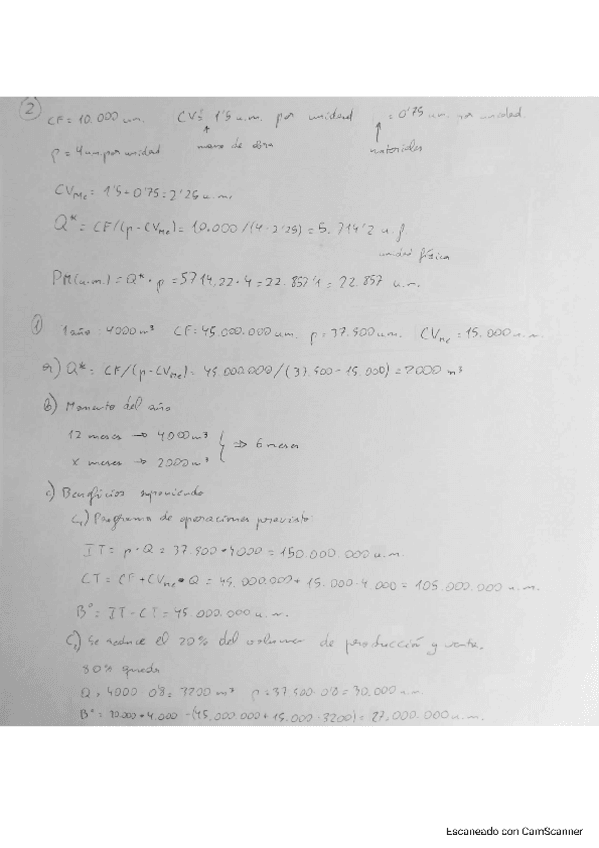 2
CF = 10.000 u.m.   CV = 1'5 u.m. por unidad   = 0'75 u.m. por unidad
mano de obra   materiales
p = 4 u.m. por unidad
CVMe = 1'5 + 0'75 = 2'25 u.m.
Q* = CF/(p - CVMe) = 10.000/(4 - 2'25) = 5.714'2 u.f
unidad física
PM(u.m.) = Q* · p = 5714,22 · 4 = 22.857'1 = 22.857 u.m.
1
1 año : 4000 m³   CF = 45.000.000 u.m.   p = 37.500 u.m.   CVMe = 15.000 u.m.
a) Q* = CF/(p - CVMe) = 45.000.000/(37.500 - 15.000) = 2000 m³
b) Momento del año
12 meses → 4000 m³
⇒ 6 meses
x meses → 2000 m³
c) Beneficios suponiendo
C₁) Programa de operaciones previsto
IT = p · Q = 37.500 · 4000 = 150.000.000 u.m.
CT = CF + CVMe · Q = 45.000.000 + 15.000 · 4.000 = 105.000.000 u.m.
Bº = IT - CT = 45.000.000 u.m.
Se reduce el 20% del volumen de producción y venta.
80% queda
Q = 4000 · 0'8 = 3200 m³   p = 37.500 · 0'8 = 30.000 u.m.
Bº = 30.000 · 4.000 - (45.000.000 + 15.000 · 3200) = 27.000.000 u.m.
Escaneado con CamScanner